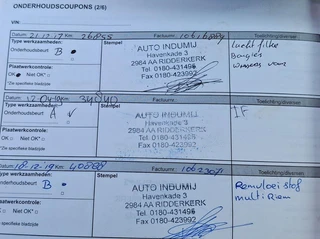 ONDERHOUDSCOUPONS (2/6)
VIN:
Datum: 21-12-17 Km: 26855 Factuurnr.: Toelichting/diversen
Type werkzaamheden: Stempel
Onderhoudsbeurt B •
Plaatwerkcontrole:
OK Niet OK*
*Zie specifieke bladzijde
AUTO INDUMIJ
Havenkade 3
2984 AA RIDDERKERK
Tel. 0180-431496
Fax 0180-423992
lucht filter
Bougies
wissers voor
Datum: Km: Factuurnr.: Toelichting/diversen
Type werkzaamheden: Stempel
Onderhoudsbeurt A ✓
Plaatwerkcontrole:
OK Niet OK*
*Zie specifieke bladzijde
AUTO INDUMIJ
Havenkade 3
2984 AA RIDDERKERK
Tel. 0180-431496
Fax 0180-423992
IF
Datum: 18-12-19 Km: 40888 Factuurnr.: Toelichting/diversen
Type werkzaamheden: Stempel
Onderhoudsbeurt B •
Plaatwerkcontrole:
OK Niet OK*
*Zie specifieke bladzijde
AUTO INDUMIJ
Havenkade 3
2984 AA RIDDERKERK
Tel. 0180-431496
Fax 0180-423992
Remvloeistof
multi Riem